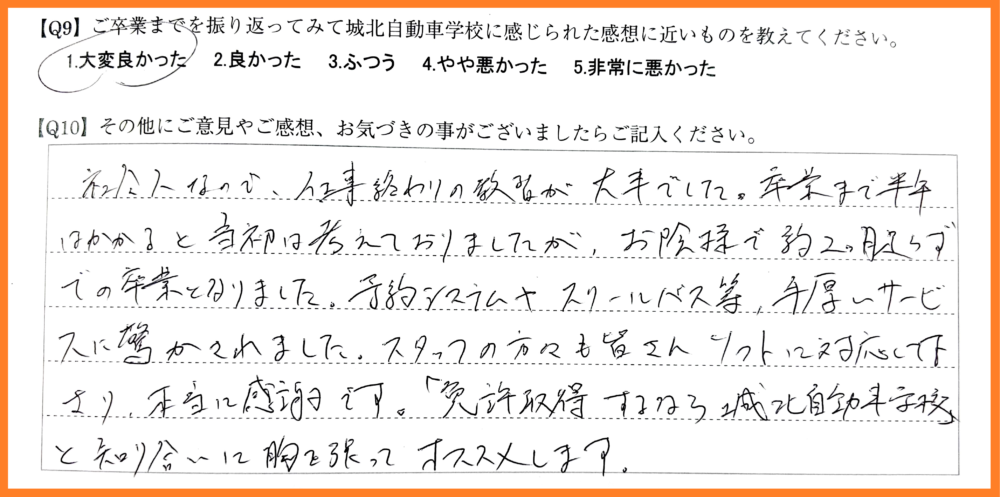 【Q9】ご卒業までを振り返ってみて城北自動車学校に感じられた感想に近いものを教えてください。
1.大変良かった　2.良かった　3.ふつう　4.やや悪かった　5.非常に悪かった
【Q10】その他にご意見やご感想、お気づきの事がございましたらご記入ください。
社会人なので、仕事終わりの教習が大半でした。卒業まで半年
はかかると当初は考えておりましたが、お陰様で約2ヶ月足らず
での卒業となりました。予約システムやスクールバス等、手厚いサービ
スに驚かされました。スタッフの方々も皆さんソフトに対応して下
さり、本当に感謝です。「免許取得するなら城北自動車学校」
と知り合いに胸を張ってオススメします。